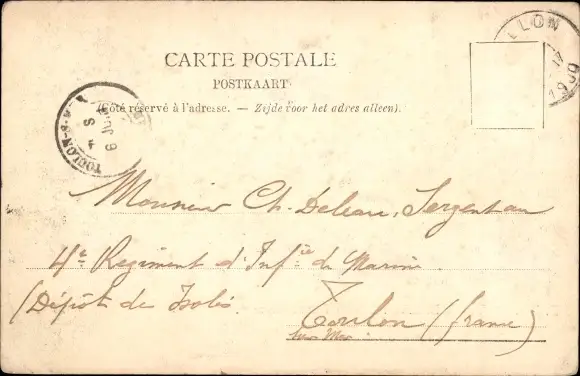 CARTE POSTALE
POSTKAART
(Côté réservé à l'adresse. — Zijde voor het adres alleen).
LLON
17
1900
TOULON-S-M
Monsieur Ch. Deleau, Sergent au
4e Regiment d'Infie de Marine
(Dépôt des Isolés
Toulon (france)
sur Mer